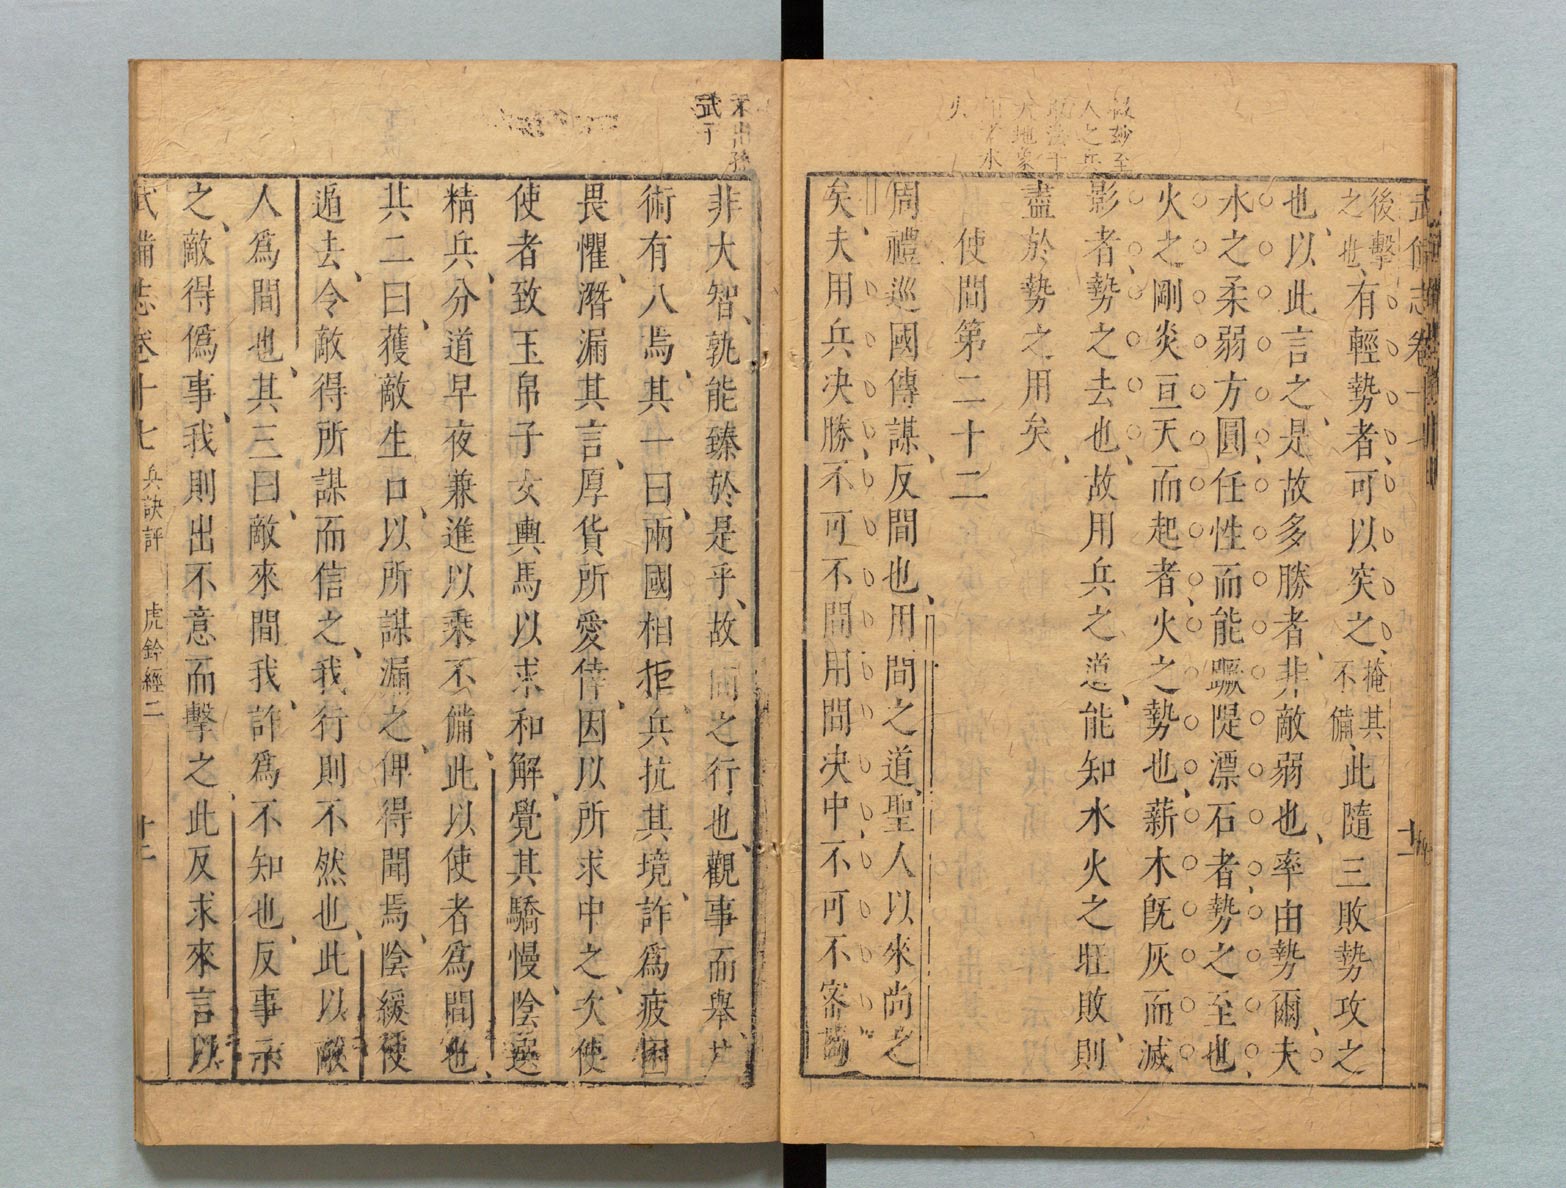 後擊
之也有輕勢者可以突之掩其
不備此隨三敗勢攻之
也以此言之是故多勝者非敵弱也率由勢爾夫
水之柔弱方圓任性而能蹶隄漂石者勢之至也
火之剛炎亘天而起者火之勢也薪木旣灰而滅
影者勢之去也故用兵之道能知水火之旺敗則
盡於勢之用矣
使間第二十二
周禮巡國傳謀反間也用間之道聖人以來尚之
矣夫用兵決勝不可不間用間決中不可不審
非大智孰能臻於是乎故間之行也觀事而舉
術有八焉其一曰兩國相拒兵抗其境詐爲疲困
畏懼潛漏其言厚貨所愛倖因以所求中之次使
使者致玉帛子女輿馬以求和解覺其驕慢陰選
精兵分道早夜兼進以乘不備此以使者爲間也
其二曰獲敵生口以所謀漏之俾得聞焉陰緩使
遁去令敵得所謀而信之我行則不然也此以敵
人爲間也其三曰敵來間我詐爲不知也反事示
之敵得僞事我則出不意而擊之此反求來言以
武備志卷十七 兵訣評 虎鈐經二 十二